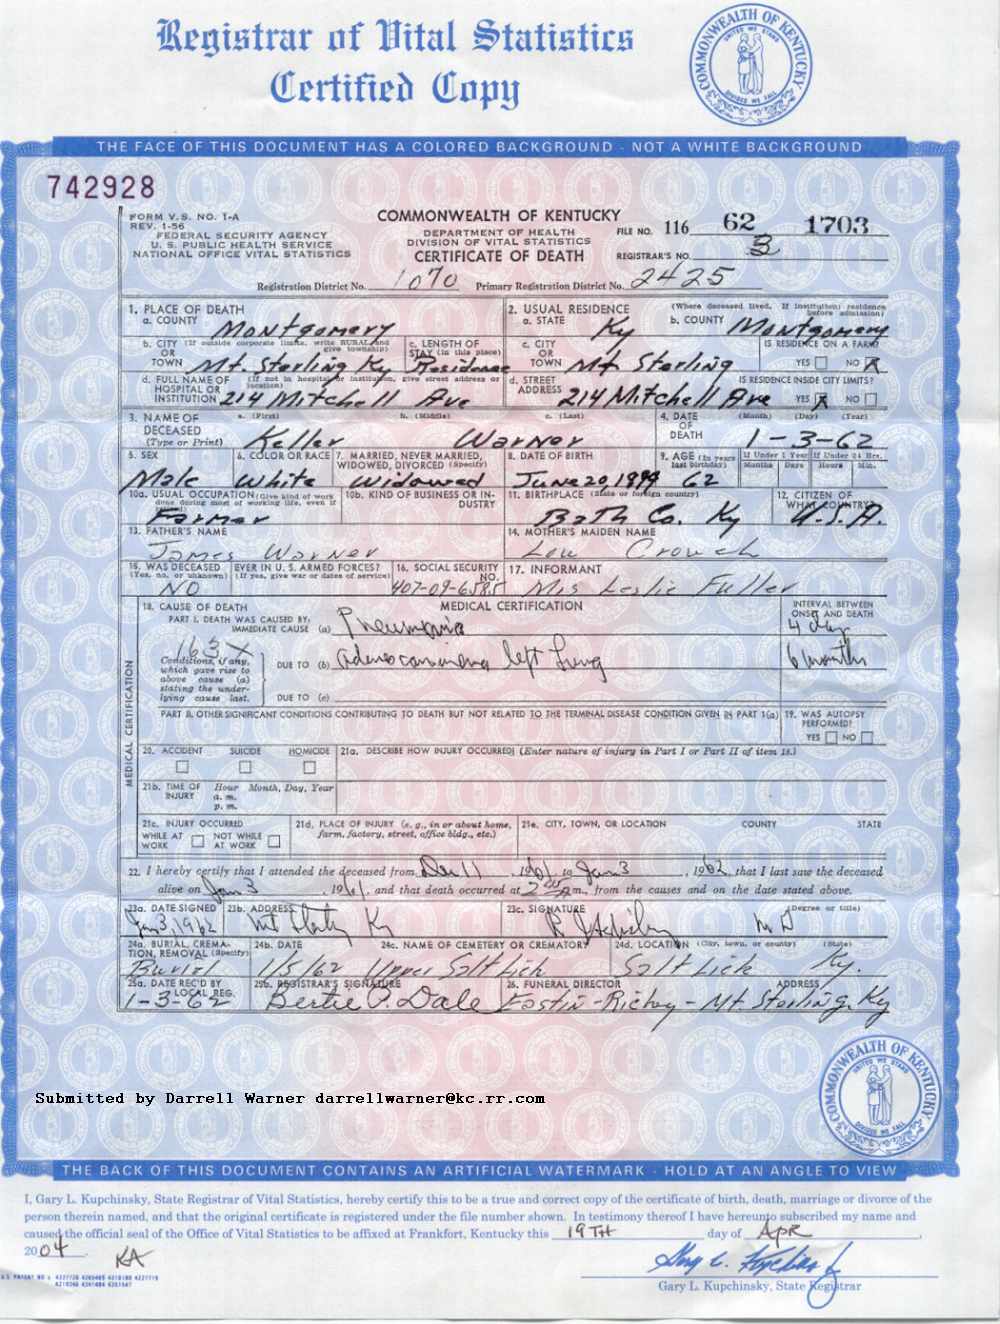 Registrar of Vital Statistics
Certified Copy
COMMONWEALTH OF KENTUCKY
UNITED WE STAND
DIVIDED WE FALL
THE FACE OF THIS DOCUMENT HAS A COLORED BACKGROUND - NOT A WHITE BACKGROUND
742928
FORM V.S. NO. 1-A
REV. 1-56
FEDERAL SECURITY AGENCY
U. S. PUBLIC HEALTH SERVICE
NATIONAL OFFICE VITAL STATISTICS
COMMONWEALTH OF KENTUCKY
DEPARTMENT OF HEALTH
DIVISION OF VITAL STATISTICS
CERTIFICATE OF DEATH
FILE NO. 116 62 1703
REGISTRAR'S NO. 3
Registration District No. 1070 Primary Registration District No. 2425
1. PLACE OF DEATH
a. COUNTY Montgomery
2. USUAL RESIDENCE (Where deceased lived. If institution: residence before admission)
a. STATE Ky b. COUNTY Montgomery
b. CITY (If outside corporate limits, write RURAL and give township) OR TOWN Mt. Sterling Ky
c. LENGTH OF STAY (in this place) Residence
c. CITY OR TOWN Mt Sterling
IS RESIDENCE ON A FARM? YES NO X
d. FULL NAME OF HOSPITAL OR INSTITUTION (If not in hospital or institution, give street address or location) 214 Mitchell Ave
d. STREET ADDRESS 214 Mitchell Ave
IS RESIDENCE INSIDE CITY LIMITS? YES X NO
3. NAME OF DECEASED (Type or Print) a. (First) b. (Middle) c. (Last)
Keller Warner
4. DATE OF DEATH (Month) (Day) (Year)
1-3-62
5. SEX Male
6. COLOR OR RACE White
7. MARRIED, NEVER MARRIED, WIDOWED, DIVORCED (Specify) Widowed
8. DATE OF BIRTH June 20, 1899
9. AGE (In years last birthday) 62
If Under 1 Year Months Days
If Under 24 Hrs. Hours Min.
10a. USUAL OCCUPATION (Give kind of work done during most of working life, even if retired) Farmer
10b. KIND OF BUSINESS OR INDUSTRY
11. BIRTHPLACE (State or foreign country) Bath Co. Ky
12. CITIZEN OF WHAT COUNTRY? U.S.A.
13. FATHER'S NAME James Warner
14. MOTHER'S MAIDEN NAME Lou Crouch
15. WAS DECEASED EVER IN U. S. ARMED FORCES? (Yes, no, or unknown) (If yes, give war or dates of service) NO
16. SOCIAL SECURITY NO. 407-09-6585
17. INFORMANT Mrs Leslie Fuller
MEDICAL CERTIFICATION
18. CAUSE OF DEATH MEDICAL CERTIFICATION INTERVAL BETWEEN ONSET AND DEATH
PART I. DEATH WAS CAUSED BY:
IMMEDIATE CAUSE (a) Pneumonia 4 days
163 X
Conditions, if any, which gave rise to above cause (a) stating the underlying cause last.
DUE TO (b) adenocarcinoma left Lung 6 months
DUE TO (c)
PART II. OTHER SIGNIFICANT CONDITIONS CONTRIBUTING TO DEATH BUT NOT RELATED TO THE TERMINAL DISEASE CONDITION GIVEN IN PART 1(a)
19. WAS AUTOPSY PERFORMED? YES NO
20. ACCIDENT SUICIDE HOMICIDE
21a. DESCRIBE HOW INJURY OCCURRED (Enter nature of injury in Part I or Part II of item 18.)
21b. TIME OF INJURY Hour Month, Day, Year
a. m.
p. m.
21c. INJURY OCCURRED
WHILE AT WORK NOT WHILE AT WORK
21d. PLACE OF INJURY (e. g., in or about home, farm, factory, street, office bldg., etc.)
21e. CITY, TOWN, OR LOCATION COUNTY STATE
22. I hereby certify that I attended the deceased from Dec 11, 1961 to Jan 3, 1962, that I last saw the deceased
alive on Jan 3, 1961, and that death occurred at 2 45 A m., from the causes and on the date stated above.
23a. DATE SIGNED Jan 3, 1962
23b. ADDRESS Mt Sterling Ky
23c. SIGNATURE (Degree or title) M D
24a. BURIAL, CREMATION, REMOVAL (Specify) Burial
24b. DATE 1/5/62
24c. NAME OF CEMETERY OR CREMATORY Upper Salt Lick
24d. LOCATION (City, town, or county) (State) Salt Lick Ky.
25a. DATE REC'D BY LOCAL REG. 1-3-62
25b. REGISTRAR'S SIGNATURE Bertie P. Dale
26. FUNERAL DIRECTOR ADDRESS Eastin-Richey-Mt. Sterling, Ky
Submitted by Darrell Warner darrellwarner@kc.rr.com
COMMONWEALTH OF KENTUCKY
UNITED WE STAND
DIVIDED WE FALL
THE BACK OF THIS DOCUMENT CONTAINS AN ARTIFICIAL WATERMARK - HOLD AT AN ANGLE TO VIEW
I, Gary L. Kupchinsky, State Registrar of Vital Statistics, hereby certify this to be a true and correct copy of the certificate of birth, death, marriage or divorce of the
person therein named, and that the original certificate is registered under the file number shown. In testimony thereof I have hereunto subscribed my name and
caused the official seal of the Office of Vital Statistics to be affixed at Frankfort, Kentucky this 19TH day of APR,
2004.
KA
Gary L. Kupchinsky, State Registrar